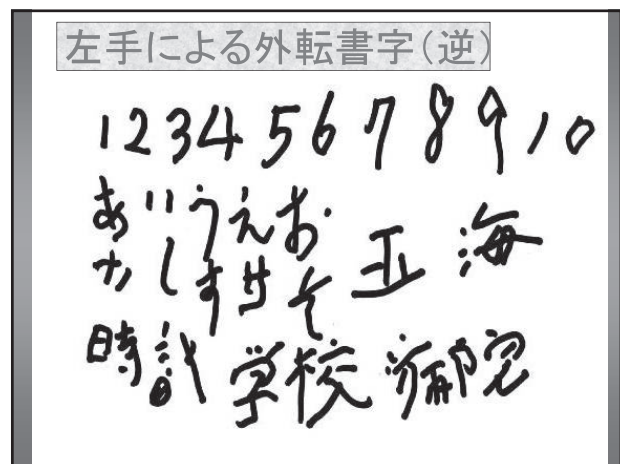 左手による外転書字(逆)
1 2 3 4 5 6 7 8 9 10
あいうえお
さしすせそ 五 海
時計 学校 病院